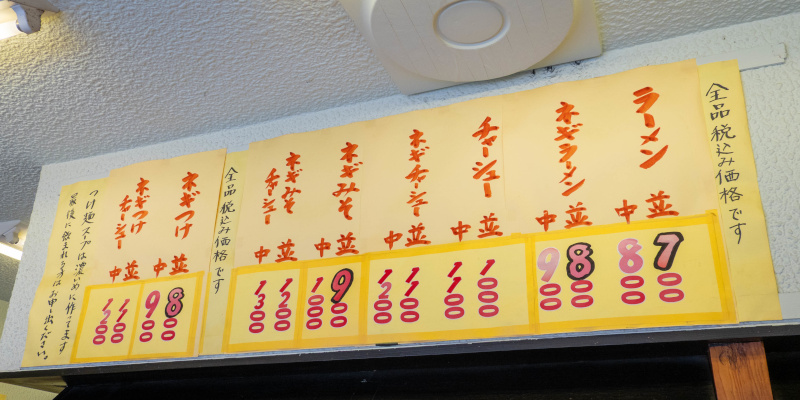 全品税込み価格です
ラーメン
並
700
中
800
ネギラーメン
並
800
中
900
チャーシュー
並
1000
中
1100
ネギチャーシュー
並
1100
中
1200
ネギみそ
並
900
中
1000
ネギみそ
チャーシュー
並
1200
中
1300
全品税込み価格です
ネギつけ
並
800
中
900
ネギつけ
チャーシュー
並
1100
中
1200
つけ麺スープは濃いめに作ってます
最後に飲まれる方はお申し出ください。